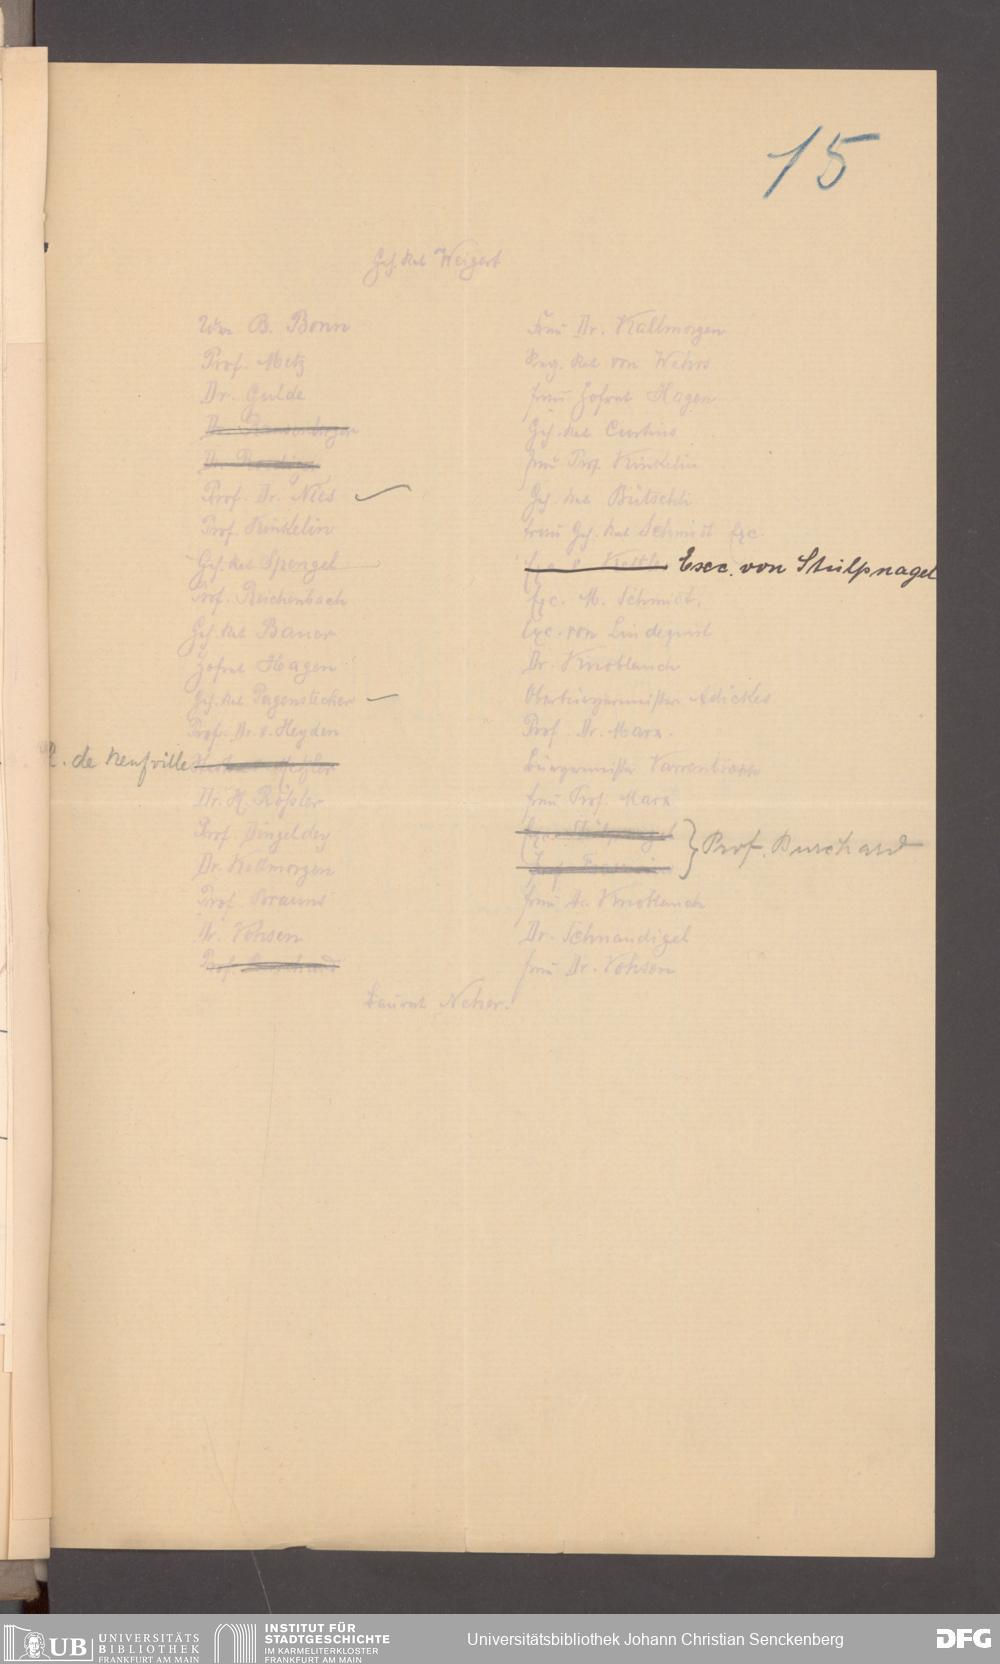 15
Geh. Rat Weigert
Wm B. Bonn
Prof. Metz
Dr. Gulde
Dr.
Dr.
Prof. Dr. Nies
Prof. Kinkelin
Geh. Rat Spengel
Prof. Reichenbach
Geh. Rat Bauer
Hofrat Hagen
Geh. Rat Pagenstecher
Prof. Dr. v. Heyden
R. de Neufville
Dr. H. Rößler
Prof. Dingeldey
Dr. Kallmorgen
Prof. Brauns
Dr. Vohsen
Prof. Burchard
Frau Dr. Kallmorgen
Reg. Rat von Wehrs
Frau Hofrat Hagen
Geh. Rat Curtius
Frau Prof. Kinkelin
Geh. Rat Bütschli
Frau Geh. Rat Schmidt Exc.
Exc. von Stülpnagel
Exc. M. Schmidt.
Exc. von Lindequist
Dr. Knoblauch
Oberbürgermeister Adickes
Prof. Dr. Marx.
Bürgermeister Varrentrapp
Frau Prof. Marx
Exc. Stülpnagel
} Prof. Burchard
Frau Dr. Knoblauch
Dr. Schnaudigel
Frau Dr. Vohsen
Baurat Neher.
UB UNIVERSITÄTS
BIBLIOTHEK
FRANKFURT AM MAIN
INSTITUT FÜR
STADTGESCHICHTE
IM KARMELITERKLOSTER
FRANKFURT AM MAIN
Universitätsbibliothek Johann Christian Senckenberg
DFG